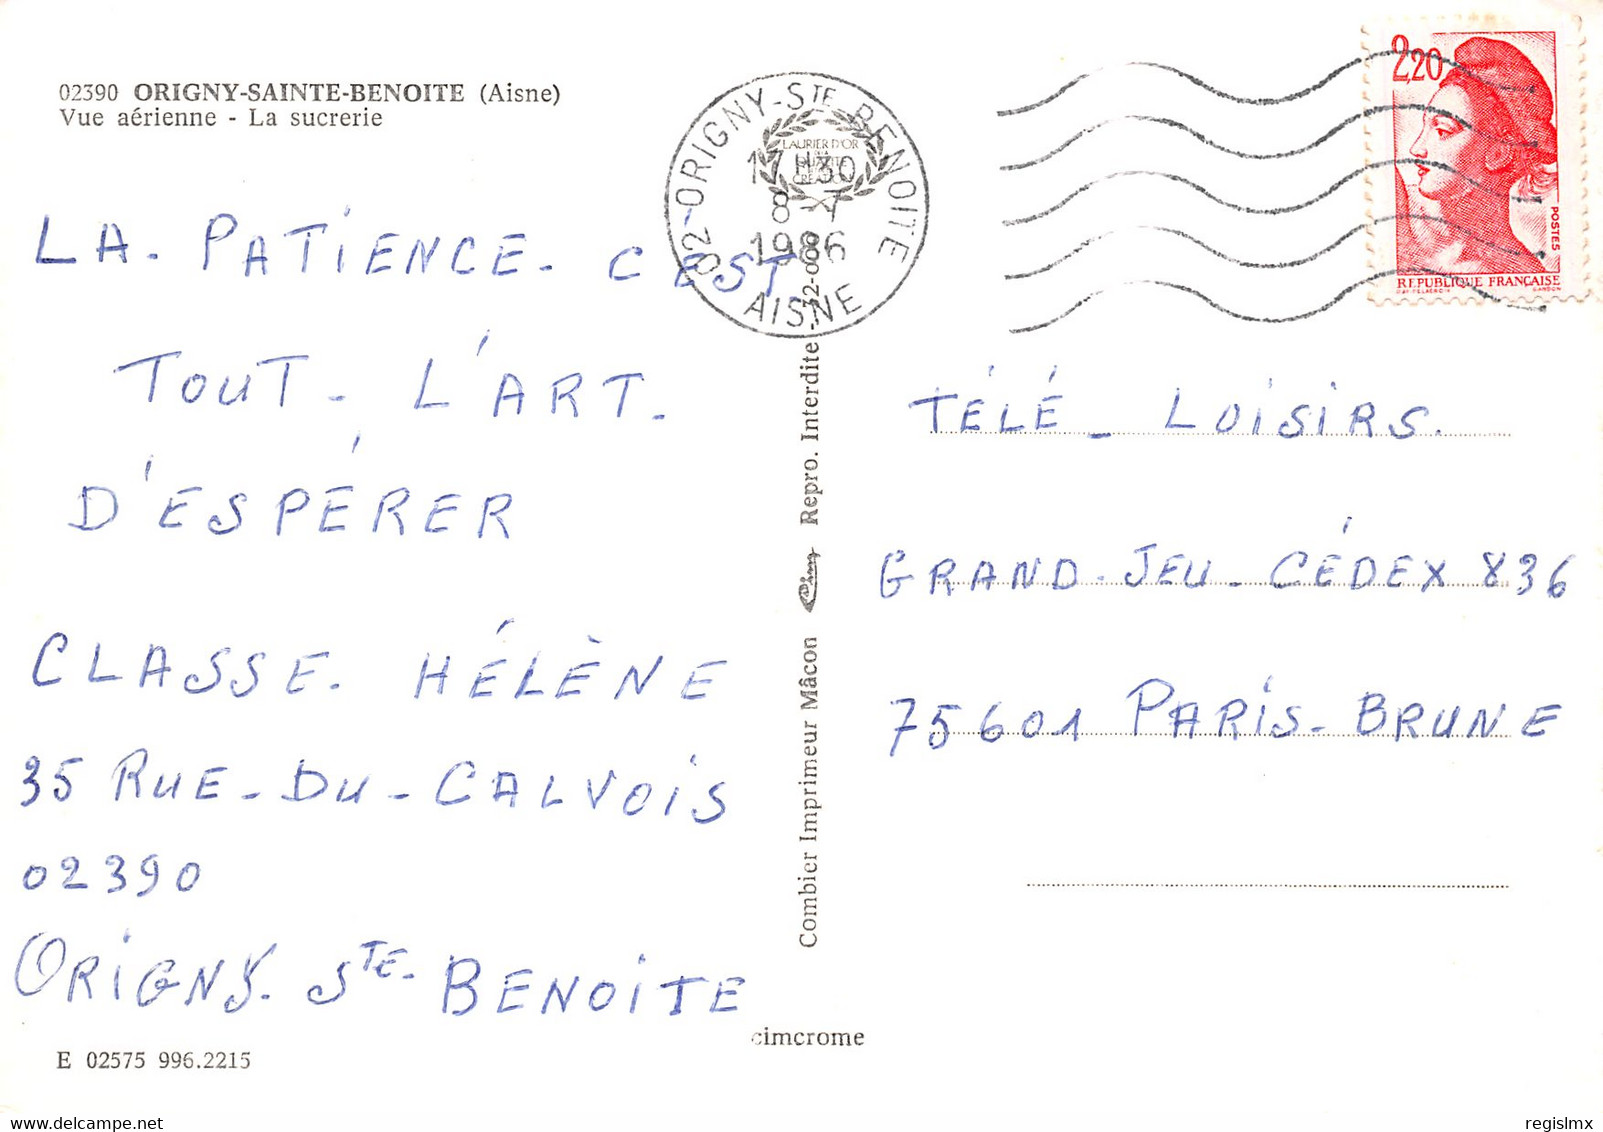 02390 ORIGNY-SAINTE-BENOITE (Aisne)
Vue aérienne - La sucrerie
LA. PATIENCE. C'EST
TOUT. L'ART.
D'ESPÉRER
CLASSE. HÉLÈNE
35 RUE-DU-CALVOIS
02390
ORIGNY. STE-BENOITE
E 02575 996.2215
cimcrome
Combier Imprimeur Mâcon Cim Repro. Interdite
02-ORIGNY-STE BENOITE
LAURIER D'OR
17H30
8-7
1986
AISNE
2,20
POSTES
REPUBLIQUE FRANÇAISE
GANDON
TÉLÉ - LOISIRS.
GRAND-JEU-CÉDEX 836
75601 PARIS-BRUNE
www.delcampe.net
regislmx